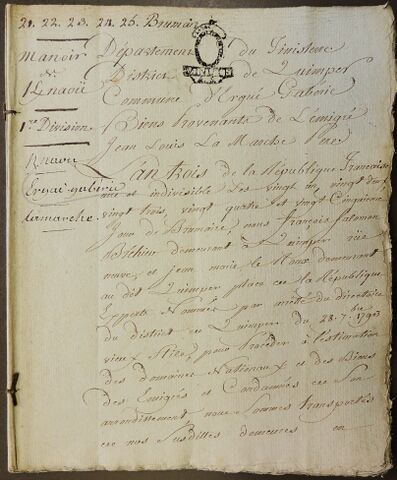 21. 22. 23. 24. 25. Brumaire
Manoir
de
Lenaoü
1re Division
Knaou
Ergué-gaberic
Lamarche.
Département du Finistere
District de Quimper
Commune d'Ergué Gaberic
Biens provenants de L'emigré
Jean Louis La Marche Pere
L'an trois de la République Française
une et indivisible Les vingt un, vingt deux
vingt trois, vingt quatre et vingt Cinquieme
Jour de Brumaire, nous françois Salomon
Bréhier demeurant à Quimper rüe
neuve, et jean marie Le Roux demeurant
au dit Quimper place de la République
Experts Nommés par arrêté du directoire
du district de Quimper du 28 7.bre 1793
vieux Stile, pour procéder à l'estimation
des domaines Nationaux et des Biens
des Emigrés et Condamnés de Son
arrondissement nous Sommes transportés
de nos Susdittes demeures en